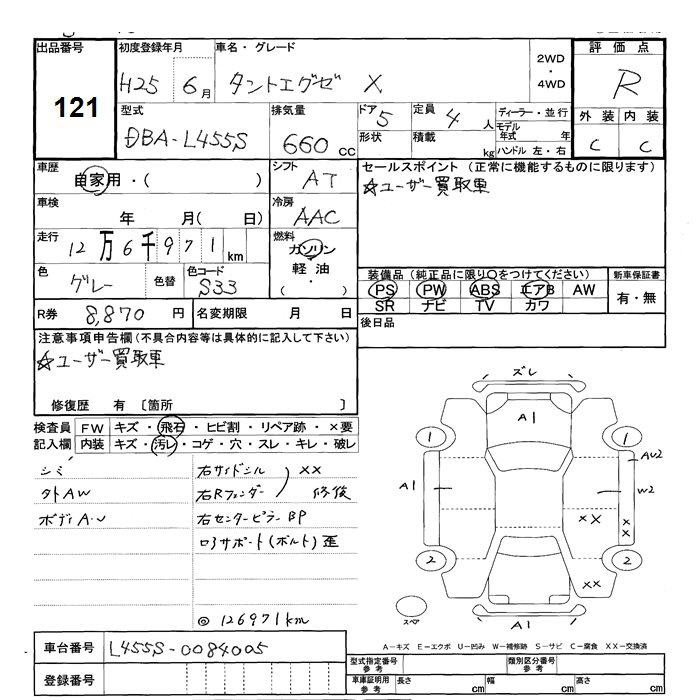 出品番号 初度登録年月 車名・グレード 評価点
121
H25 6月 タントエグゼ X 2WD・4WD R
型式 排気量 ドア 5 定員 4人 ディーラー・並行 外装 内装
DBA-L455S 660cc 形状 積載 kg モデル年式 年 C C
ハンドル 左・右
車歴 シフト セールスポイント(正常に機能するものに限ります)
自家用・( ) AT ☆ユーザー買取車
車検 冷房
年 月( 日) AAC
走行 燃料
12万6千971km ガソリン
軽油
・
( )
色 色替 色コード
グレー S33
装備品(純正品に限り○をつけてください) 新車保証書
PS PW ABS エアB AW 有・無
SR ナビ TV カワ
R券 8,870円 名変期限 月 日 後日品
注意事項申告欄(不具合内容等は具体的に記入して下さい)
☆ユーザー買取車
修復歴 有〔箇所 〕
検査員 FW キズ・飛石・ヒビ割・リペア跡・×要
記入欄 内装 キズ・汚レ・コゲ・穴・スレ・キレ・破レ
シミ 右サイドシル XX
外AW 右Rフェンダー 修復
ボディA・U 右センターピラーBP
ロアサポート(ボルト)歪
◎126971km
ズレ
A1
1 1
AU2
A1 W2
XX XX
2 2
XX
スペア A1
A-キズ E-エクボ U-凹み W-補修跡 S-サビ C-腐食 XX-交換済
車台番号 L455S-0084005
登録番号
型式指定番号 参考 類別区分番号 参考
車庫証明用 参考 長さ cm 幅 cm 高さ cm